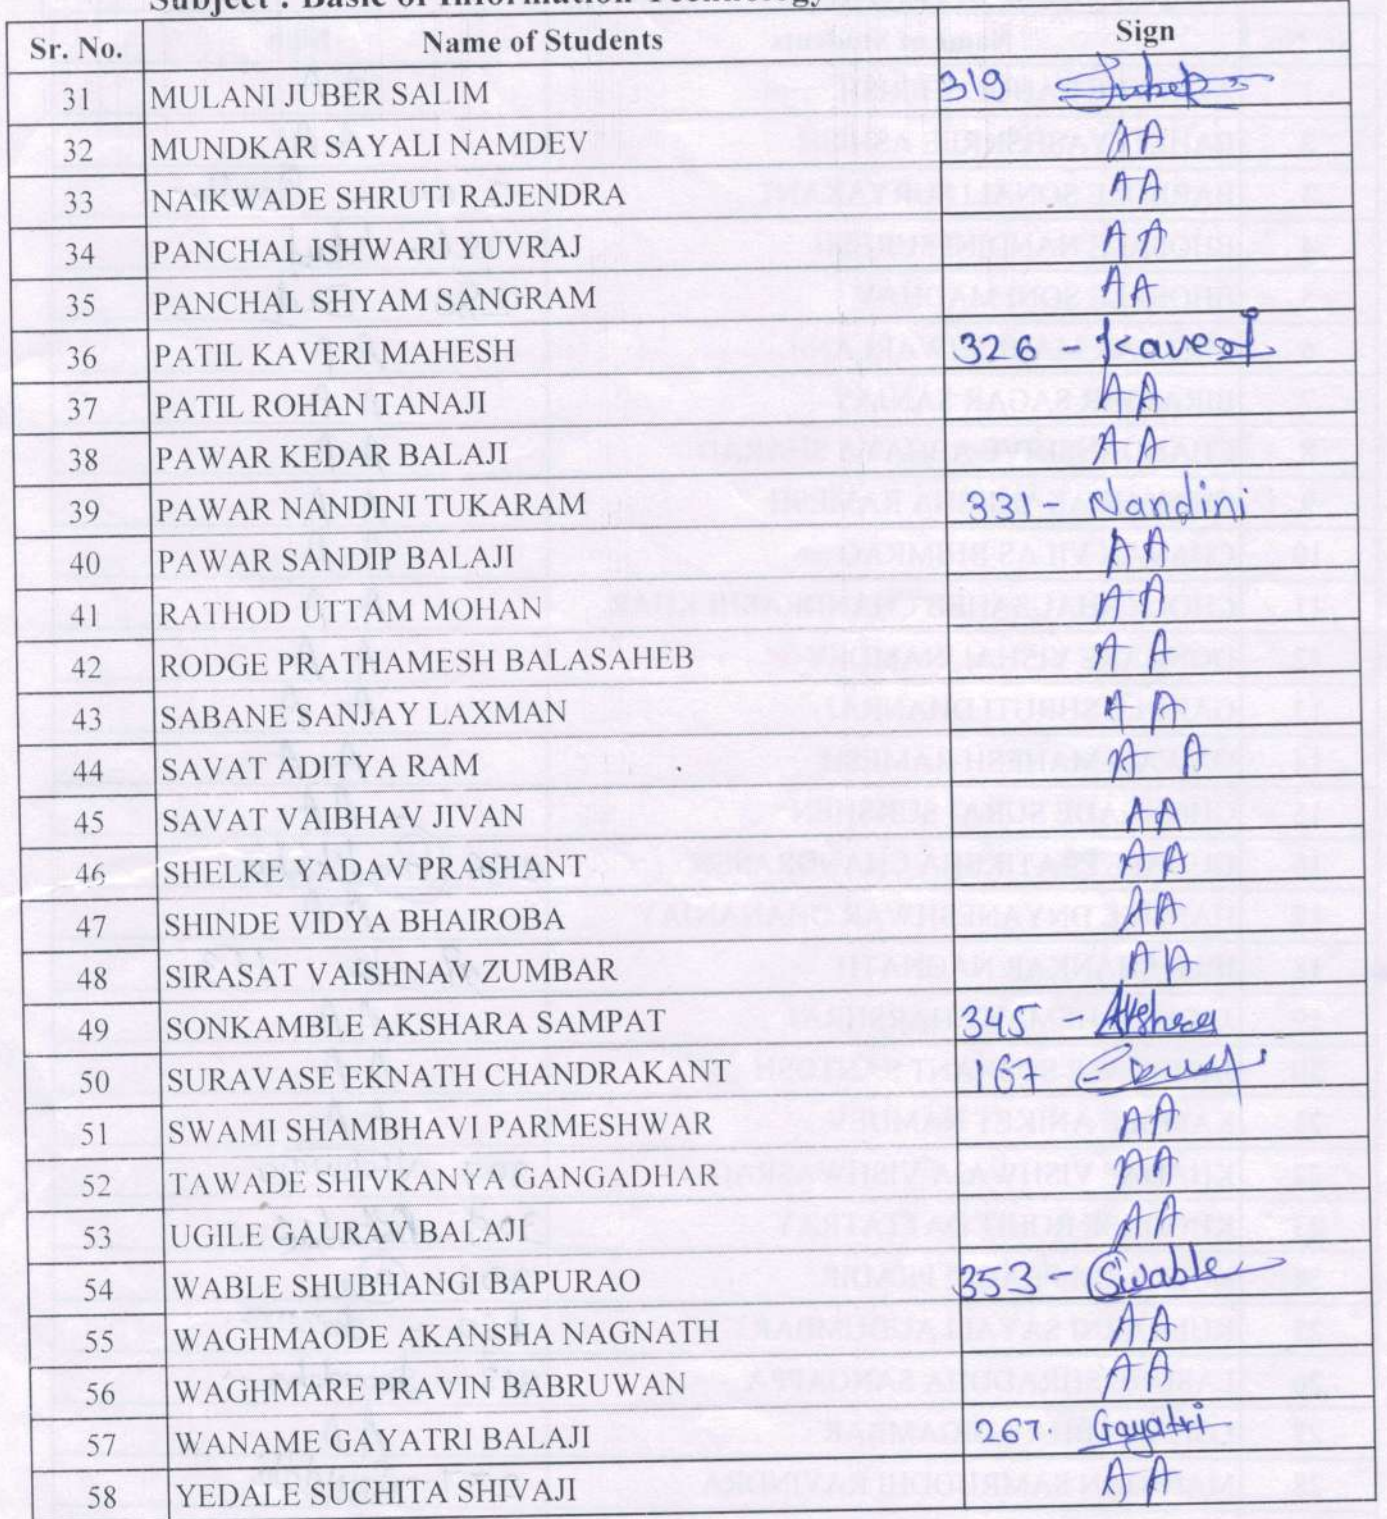 Subject : Basic of Information Technology
Sr. No. Name of Students Sign
31 MULANI JUBER SALIM 319 Juber
32 MUNDKAR SAYALI NAMDEV AA
33 NAIKWADE SHRUTI RAJENDRA AA
34 PANCHAL ISHWARI YUVRAJ AA
35 PANCHAL SHYAM SANGRAM AA
36 PATIL KAVERI MAHESH 326 - Kaveri
37 PATIL ROHAN TANAJI AA
38 PAWAR KEDAR BALAJI AA
39 PAWAR NANDINI TUKARAM 331 - Nandini
40 PAWAR SANDIP BALAJI AA
41 RATHOD UTTAM MOHAN AA
42 RODGE PRATHAMESH BALASAHEB AA
43 SABANE SANJAY LAXMAN AA
44 SAVAT ADITYA RAM A A
45 SAVAT VAIBHAV JIVAN AA
46 SHELKE YADAV PRASHANT AA
47 SHINDE VIDYA BHAIROBA AA
48 SIRASAT VAISHNAV ZUMBAR AA
49 SONKAMBLE AKSHARA SAMPAT 345
50 SURAVASE EKNATH CHANDRAKANT 167
51 SWAMI SHAMBHAVI PARMESHWAR AA
52 TAWADE SHIVKANYA GANGADHAR AA
53 UGILE GAURAV BALAJI AA
54 WABLE SHUBHANGI BAPURAO 353 - Swable
55 WAGHMAODE AKANSHA NAGNATH AA
56 WAGHMARE PRAVIN BABRUWAN AA
57 WANAME GAYATRI BALAJI 267. Gayatri
58 YEDALE SUCHITA SHIVAJI AA